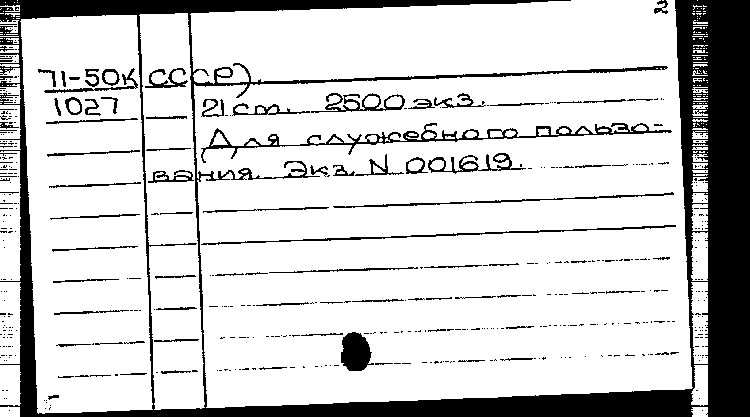 2
71-50К СССР).
1027 21 cm. 2500 экз.
Для служебного пользо-
вания. Экз. N 001619.